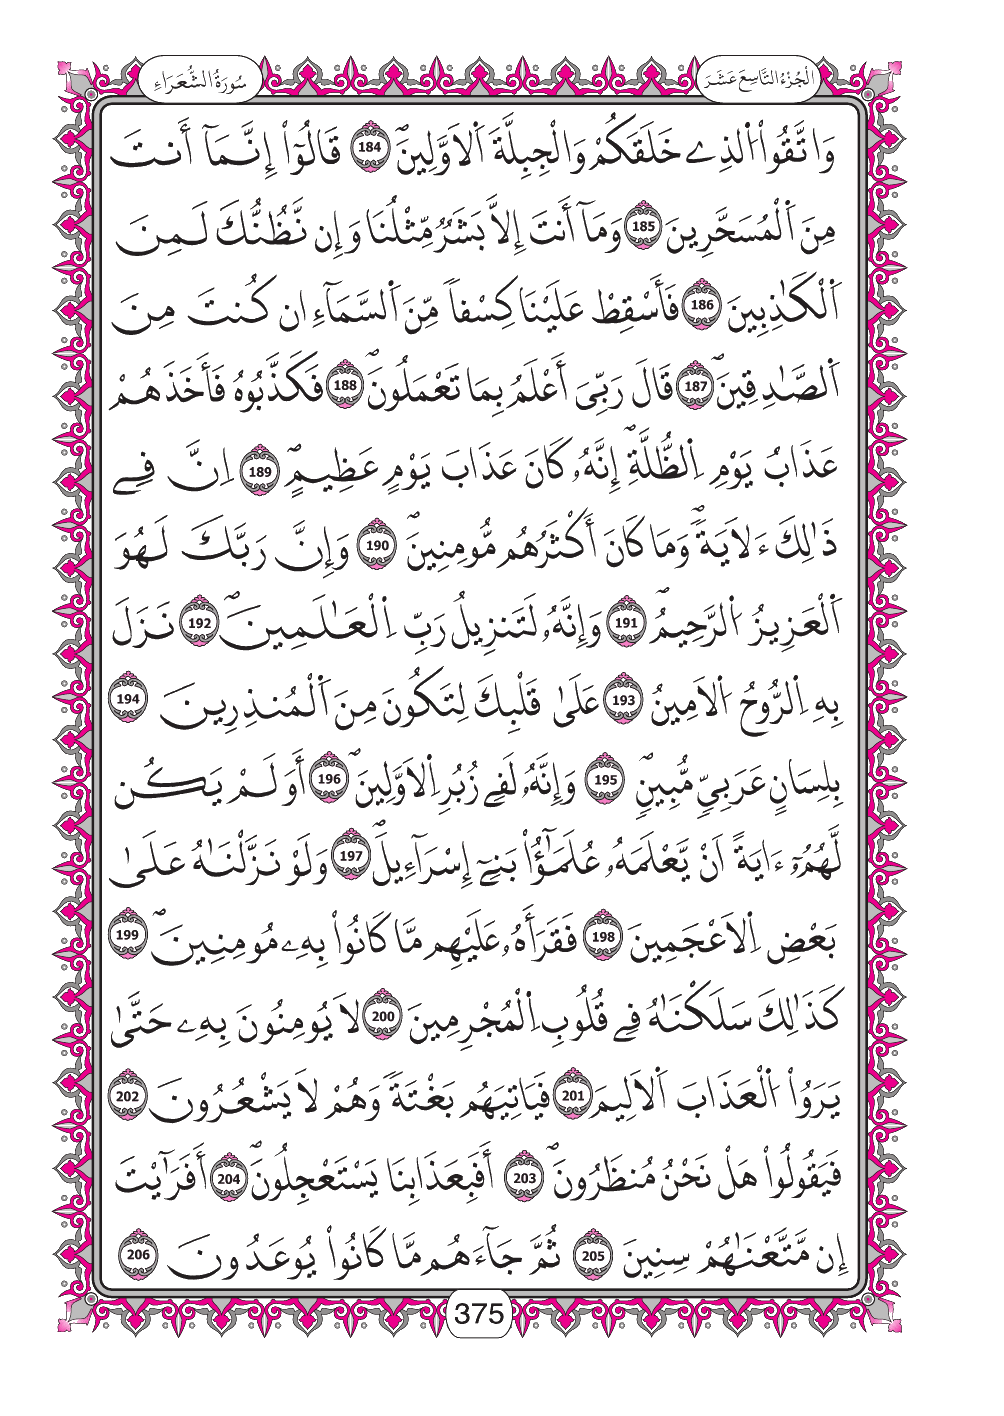 سُورَةُ الشُّعَرَاءِ
اَلْجُزْءُ التَّاسِعَ عَشَرَ
وَاتَّقُواْ اُ۬لذِے خَلَقَكُمْ وَالْجِبِلَّةَ اَ۬لَاوَّلِينَۖ 184 قَالُوٓاْ إِنَّمَآ أَنتَ
مِنَ اَ۬لْمُسَحَّرِينَ 185 وَمَآ أَنتَ إِلَّا بَشَرٞ مِّثْلُنَا وَإِن نَّظُنُّكَ لَمِنَ
اَ۬لْكَٰذِبِينَ 186 فَأَسْقِطْ عَلَيْنَا كِسْفاٗ مِّنَ اَ۬لسَّمَآءِ اِن كُنتَ مِنَ
اَ۬لصَّٰدِقِينَۖ 187 قَالَ رَبِّيَ أَعْلَمُ بِمَا تَعْمَلُونَۖ 188 فَكَذَّبُوهُ فَأَخَذَهُمْ
عَذَابُ يَوْمِ اِ۬لظُّلَّةِۖ إِنَّهُۥ كَانَ عَذَابَ يَوْمٍ عَظِيمٍۖ 189 اِنَّ فِے
ذَٰلِكَ ءَلَايَةٗۖ وَمَا كَانَ أَكْثَرُهُم مُّومِنِينَۖ 190 وَإِنَّ رَبَّكَ لَهُوَ
اَ۬لْعَزِيزُ اُ۬لرَّحِيمُۖ 191 وَإِنَّهُۥ لَتَنزِيلُ رَبِّ اِ۬لْعَٰلَمِينَۖ 192 نَزَلَ
بِهِ اِ۬لرُّوحُ اُ۬لَامِينُ 193 عَلَىٰ قَلْبِكَ لِتَكُونَ مِنَ اَ۬لْمُنذِرِينَ 194
بِلِسَانٍ عَرَبِيّٖ مُّبِينٖۖ 195 وَإِنَّهُۥ لَفِے زُبُرِ اِ۬لَاوَّلِينَۖ 196 أَوَلَمْ يَكُن
لَّهُمُۥٓ ءَايَةً اَنْ يَّعْلَمَهُۥ عُلَمَٰٓؤُاْ بَنِےٓ إِسْرَآءِيلَۖ 197 وَلَوْ نَزَّلْنَٰهُ عَلَىٰ
بَعْضِ اِ۬لَاعْجَمِينَ 198 فَقَرَأَهُۥ عَلَيْهِم مَّا كَانُواْ بِهِۦ مُومِنِينَۖ 199
كَذَٰلِكَ سَلَكْنَٰهُ فِے قُلُوبِ اِ۬لْمُجْرِمِينَ 200 لَا يُومِنُونَ بِهِۦ حَتَّىٰ
يَرَوُاْ اُ۬لْعَذَابَ اَ۬لَالِيمَ 201 فَيَاتِيَهُم بَغْتَةٗ وَهُمْ لَا يَشْعُرُونَ 202
فَيَقُولُواْ هَلْ نَحْنُ مُنظَرُونَۖ 203 أَفَبِعَذَابِنَا يَسْتَعْجِلُونَۖ 204 أَفَرَٰٓيْتَ
إِن مَّتَّعْنَٰهُمْ سِنِينَ 205 ثُمَّ جَآءَهُم مَّا كَانُواْ يُوعَدُونَ 206
375